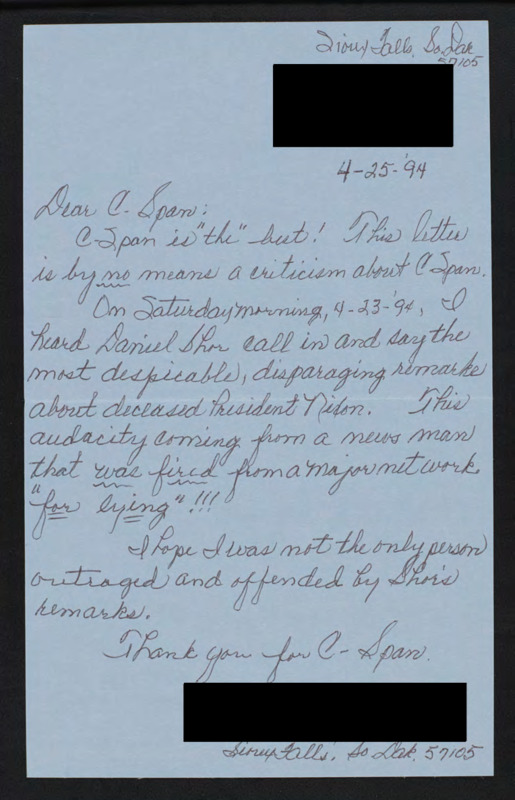 Sioux Falls, So. Dak
57105
4-25-'94
Dear C-Span:
C-Span is "the" best! This letter
is by no means a criticism about C Span.
On Saturday morning, 4-23-'94, I
heard Daniel Shor call in and say the
most despicable, disparaging remarks
about deceased President Nixon. This
audacity coming from a news man
that was fired from a major network
"for lying"!!!
I hope I was not the only person
outraged and offended by Shor's
remarks.
Thank you for C-Span.
Sioux Falls, So Dak. 57105